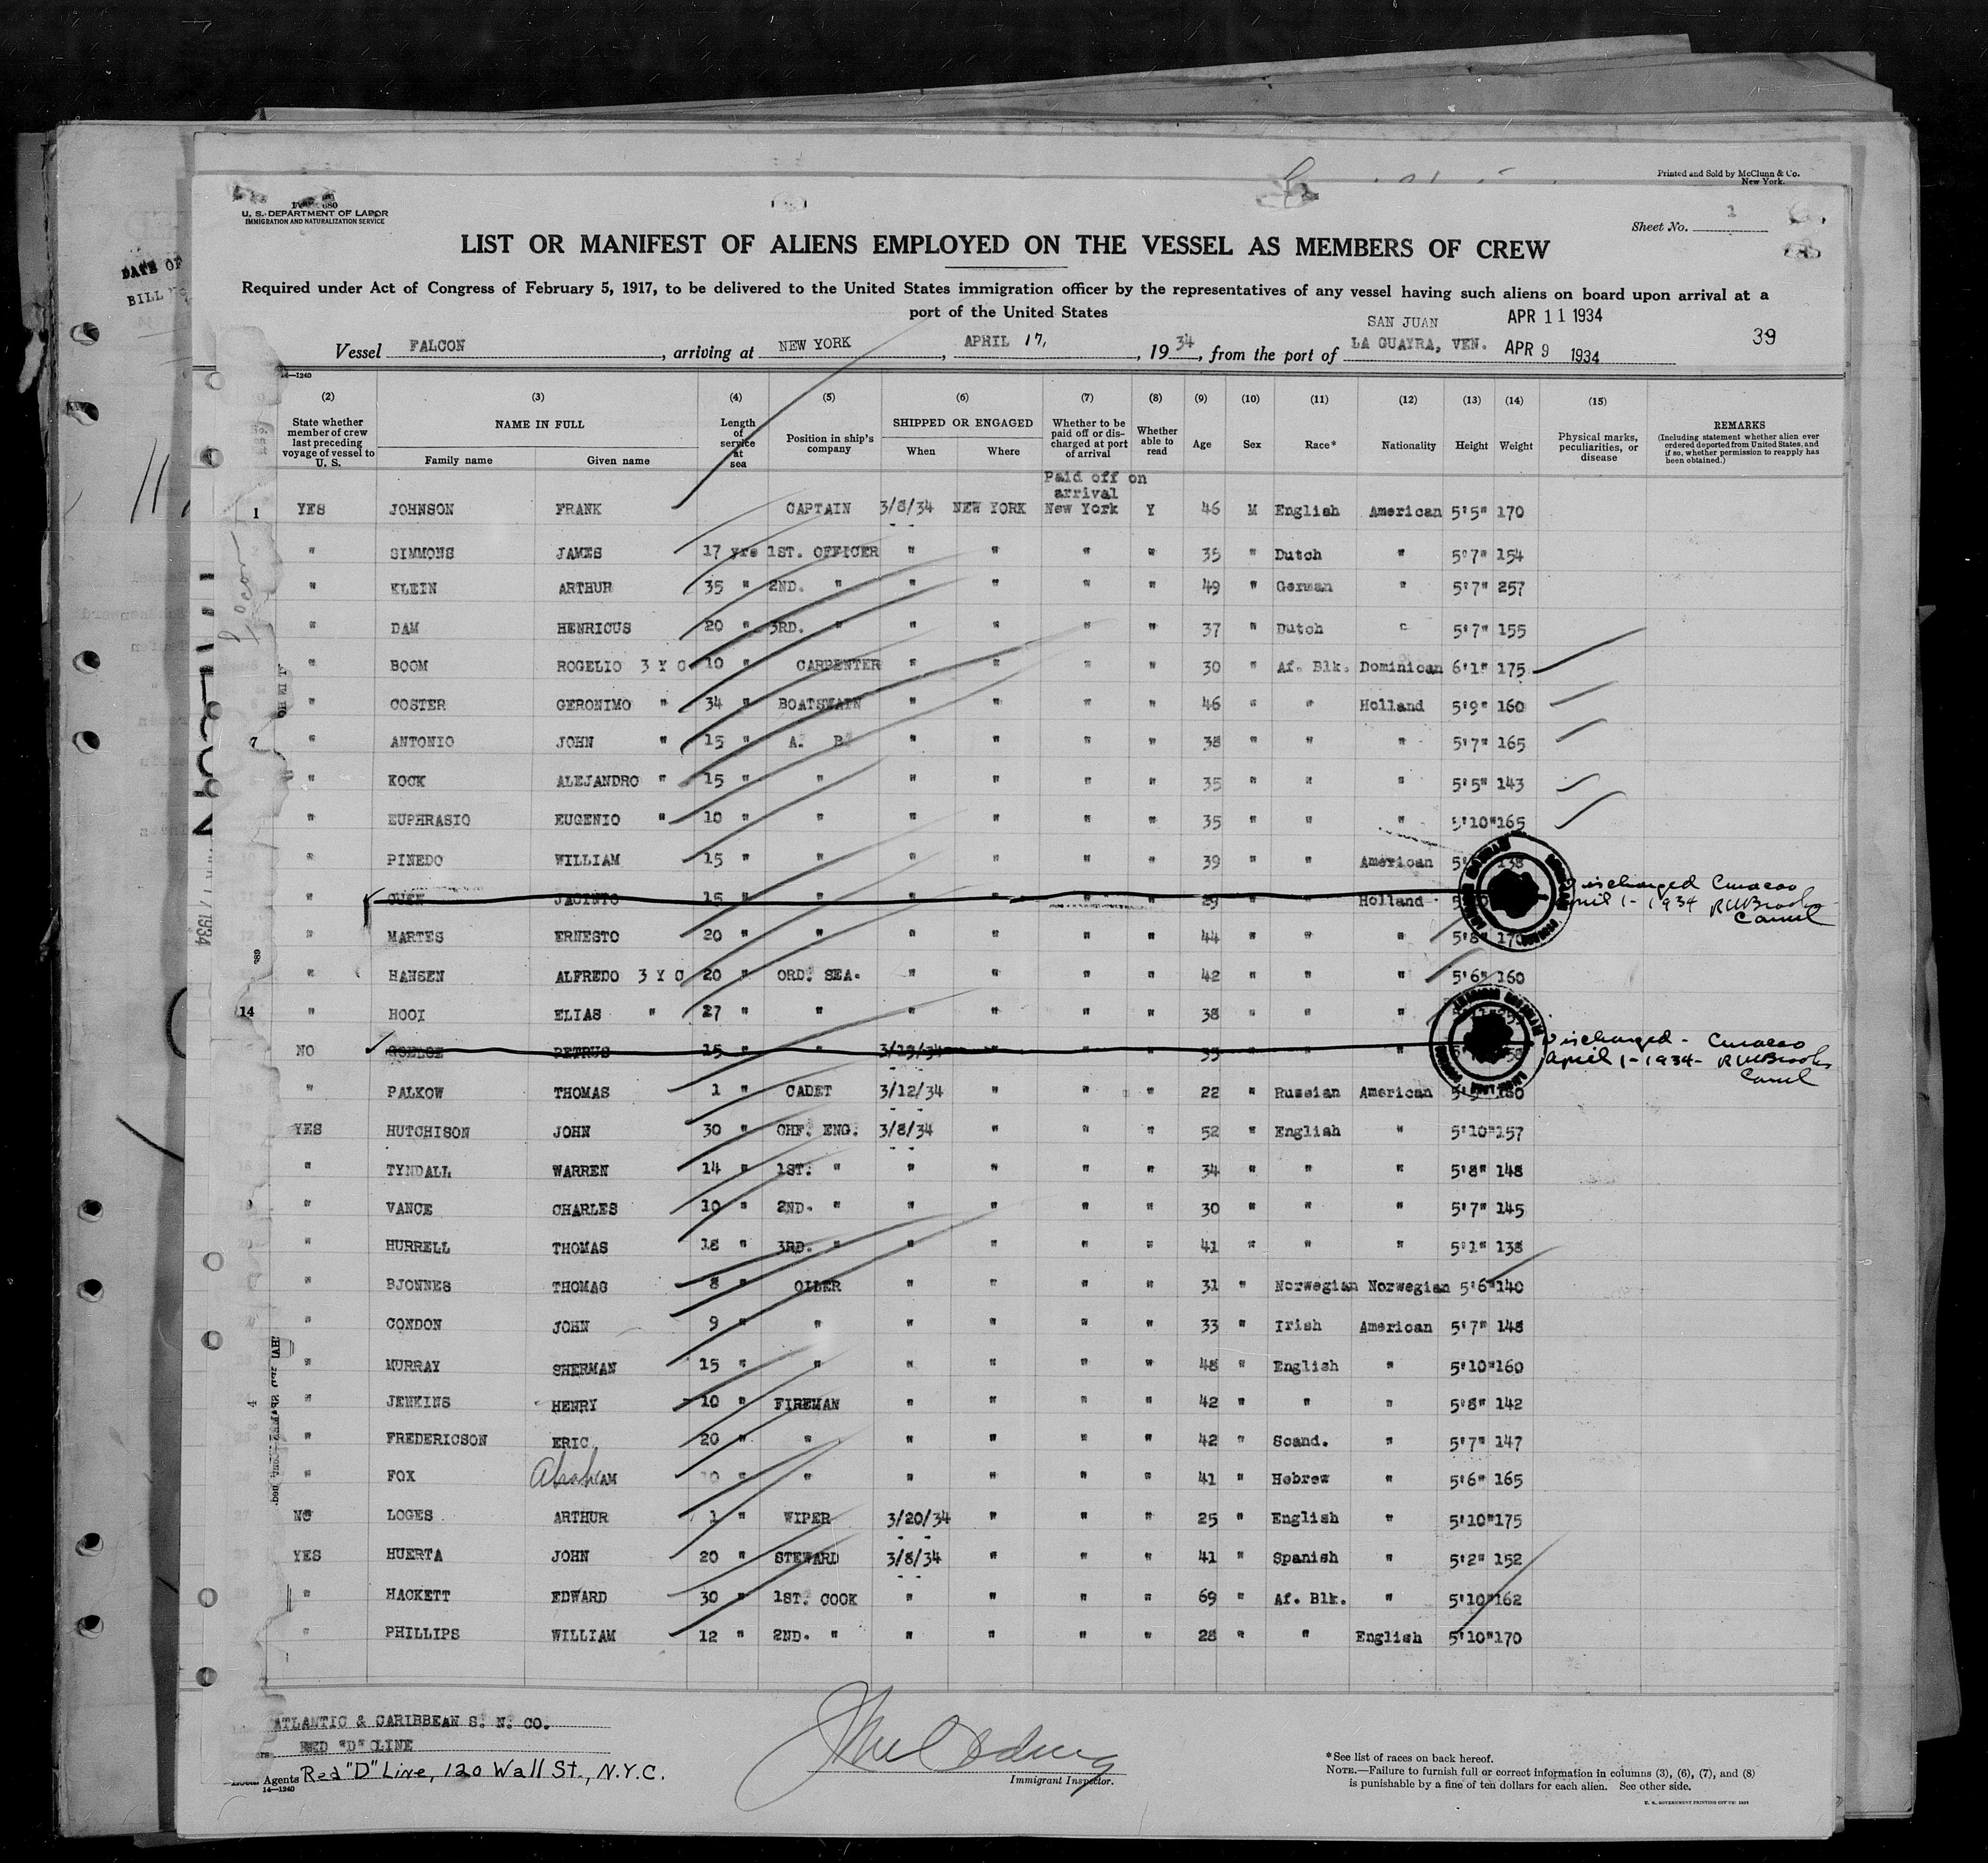 Printed and Sold by McClunn & Co.
New York.
680
U. S. DEPARTMENT OF LABOR
IMMIGRATION AND NATURALIZATION SERVICE
Sheet No. 1
LIST OR MANIFEST OF ALIENS EMPLOYED ON THE VESSEL AS MEMBERS OF CREW
Required under Act of Congress of February 5, 1917, to be delivered to the United States immigration officer by the representatives of any vessel having such aliens on board upon arrival at a
port of the United States
SAN JUAN APR 11 1934
Vessel FALCON, arriving at NEW YORK, APRIL 17, 1934, from the port of LA GUAYRA, VEN. APR 9 1934
39
14—1240
(2) (3) (4) (5) (6) (7) (8) (9) (10) (11) (12) (13) (14) (15)
State whether member of crew last preceding voyage of vessel to U. S.
NAME IN FULL
Family name Given name
Length of service at sea
Position in ship's company
SHIPPED OR ENGAGED
When Where
Whether to be paid off or discharged at port of arrival
Whether able to read
Age Sex Race* Nationality Height Weight
Physical marks, peculiarities, or disease
REMARKS
(Including statement whether alien ever ordered deported from United States, and if so, whether permission to reapply has been obtained.)
Paid off on
arrival
1 YES JOHNSON FRANK CAPTAIN 3/8/34 NEW YORK New York Y 46 M English American 5'5" 170
" SIMMONS JAMES 17 yrs 1ST. OFFICER " " " " 35 " Dutch " 5'7" 154
" KLEIN ARTHUR 35 " 2ND. " " " " " 49 " German " 5'7" 257
" DAM HENRICUS 20 " 3RD. " " " " " 37 " Dutch " 5'7" 155
" BOOM ROGELIO 3 Y C 10 " CARPENTER " " " " 30 " Af. Blk. Dominican 6'1" 175
" COSTER GERONIMO " 34 " BOATSWAIN " " " " 46 " " Holland 5'9" 160
7 " ANTONIO JOHN " 15 " A. B. " " " " 38 " " " 5'7" 165
" KOCK ALEJANDRO " 15 " " " " " " 35 " " " 5'5" 143
" EUPHRASIO EUGENIO " 10 " " " " " " 35 " " " 5'10" 165
" PINEDO WILLIAM 15 " " " " " " 39 " " American 5' 138
" JACINTO 15 " " " " " " 29 " " Holland Discharged Curacao
April 1-1934 RWBrooks
Consul
" MARTES ERNESTO 20 " " " " " " 44 " " " 5'8" 170
" HANSEN ALFREDO 3 Y C 20 " ORD. SEA. " " " " 42 " " " 5'6" 160
14 " HOOI ELIAS " 27 " " " " " " 38 " " "
NO PETRUS 15 " " 3/19/34 " " " " " " Discharged - Curacao
April 1-1934- RWBrooks
Consul
" PALKOW THOMAS 1 " CADET 3/12/34 " " " 22 " Russian American
YES HUTCHISON JOHN 30 " CHF. ENG. 3/8/34 " " " 52 " English " 5'10" 157
" TYNDALL WARREN 14 " 1ST. " " " " " 34 " " " 5'8" 148
" VANCE CHARLES 10 " 2ND. " " " " " 30 " " " 5'7" 145
" HURRELL THOMAS 18 " 3RD. " " " " " 41 " " " 5'1" 138
" BJONNES THOMAS 8 " OILER " " " " 31 " Norwegian Norwegian 5'6" 140
" CONDON JOHN 9 " " " " " " 33 " Irish American 5'7" 148
" MURRAY SHERMAN 15 " " " " " " 48 " English " 5'10" 160
" JENKINS HENRY 10 " FIREMAN " " " " 42 " " " 5'8" 142
" FREDERICSON ERIC 20 " " " " " " 42 " Scand. " 5'7" 147
" FOX AbrahAM " " " " " " 41 " Hebrew " 5'6" 165
NO LOGES ARTHUR 1 " WIPER 3/20/34 " " " 25 " English " 5'10" 175
YES HUERTA JOHN 20 " STEWARD 3/8/34 " " " 41 " Spanish " 5'2" 152
" HACKETT EDWARD 30 " 1ST. COOK " " " " 69 " Af. Blk. " 5'10" 162
" PHILLIPS WILLIAM 12 " 2ND. " " " " " 28 " " English 5'10" 170
ATLANTIC & CARIBBEAN S. N. CO.
RED "D" LINE
Agents Red "D" Line, 120 Wall St., N.Y.C.
14—1240
Immigrant Inspector.
*See list of races on back hereof.
NOTE.—Failure to furnish full or correct information in columns (3), (6), (7), and (8)
is punishable by a fine of ten dollars for each alien. See other side.
DATE OF
BILL
Falcon